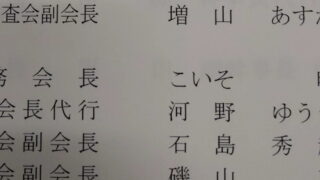 査会副会長　増　山　あすか
会　長　こいそ
会長代行　河　野　ゆう
会副会長　石　島　秀
会副会長　磯　山